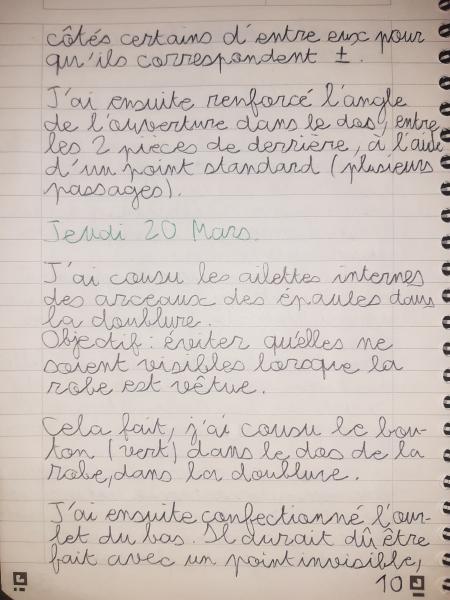 côtés certains d'entre eux pour
qu'ils correspondent ±.
J'ai ensuite renforcé l'angle
de l'ouverture dans le dos, entre
les 2 pièces de derrière, à l'aide
d'un point standard (plusieurs
passages).
Jeudi 20 Mars.
J'ai cousu les ailettes internes
des arceaux des épaules dans
la doublure.
Objectif : éviter qu'elles ne
soient visibles lorsque la
robe est vêtue.
Cela fait, j'ai cousu le bou-
ton (vert) dans le dos de la
robe, dans la doublure.
J'ai ensuite confectionné l'our-
let du bas. Il aurait dû être
fait avec un point invisible,
10